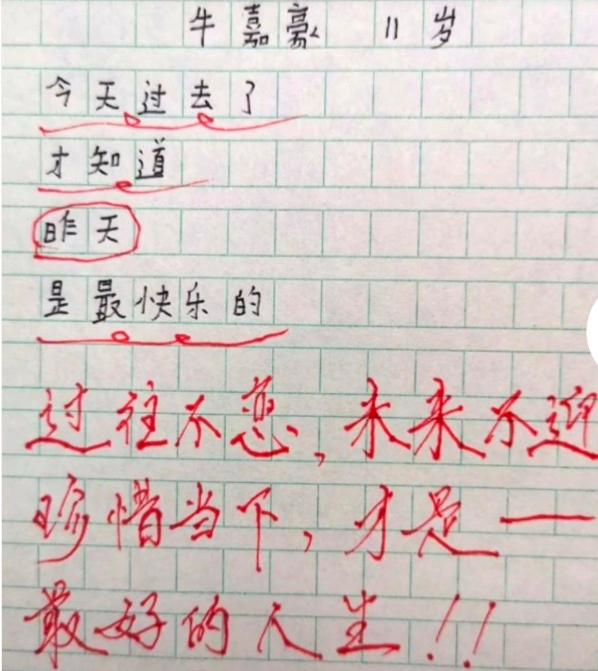 牛嘉豪 11岁
今天过去了
才知道
昨天
是最快乐的
过往不恋,未来不迎
珍惜当下,才是——
最好的人生!!